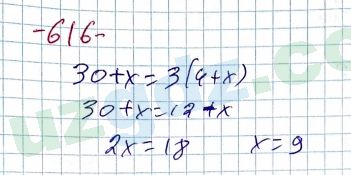 -616-
30+x=3(4+x)
30+x=12+x
2x=18 x=9